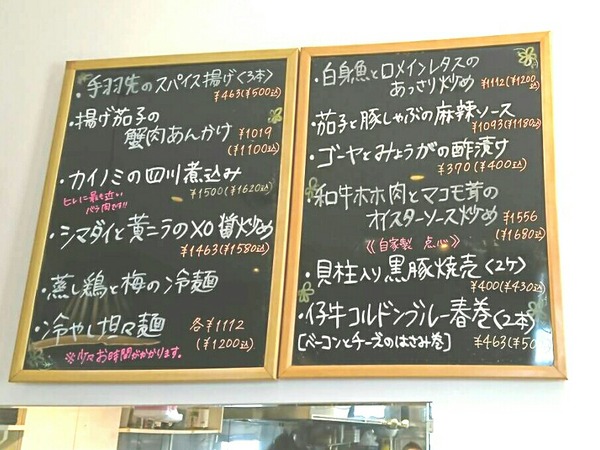 ・手羽先のスパイス揚げ〈3本〉
¥463(¥500込)
・揚げ茄子の
蟹肉あんかけ ¥1019
(¥1100込)
・カイノミの四川煮込み
ヒレに最も近い
バラ肉です!!
¥1500(¥1620込)
・シマダイと黄ニラのXO醤炒め
¥1463(¥1580込)
・蒸し鶏と梅の冷麺
・冷やし坦々麺 各¥1112
(¥1200込)
※少々お時間がかかります。
・白身魚とロメインレタスの
あっさり炒め ¥1112(¥1200込)
・茄子と豚しゃぶの麻辣ソース
¥1093(¥1180込)
・ゴーヤとみょうがの酢漬け
¥370(¥400込)
・和牛ホホ肉とマコモ茸の
オイスターソース炒め ¥1556
(¥1680込)
《自家製 点心》
・貝柱入り黒豚焼売〈2ケ〉
¥400(¥430込)
・仔牛コルドンブルー春巻〈2本〉
[ベーコンとチーズのはさみ巻] ¥463(¥50